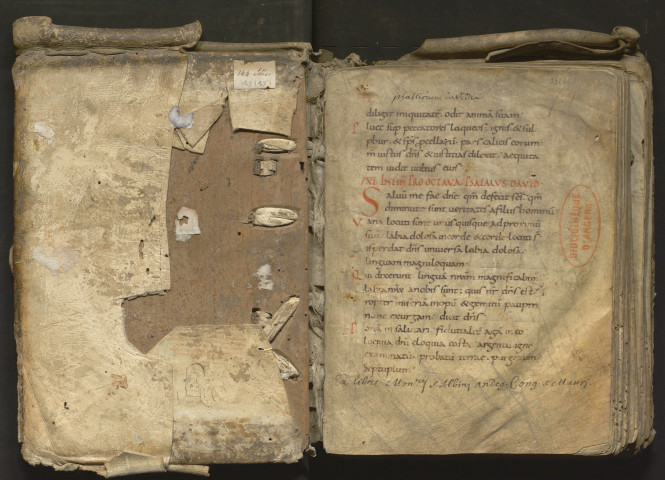 psalterium davidis
diligit iniquitatē· odit animā suam·
Pluet sup peccatores laqueos· ignis & sul
phur· & sp̄s pcellarū pars calicis eorum·
Qm iustus dn̄s & iusticias dilexit· æquita
tem uidit uultus eius·
XI IN FINĒ PRO OCTAVA PSALMVS DAVID
Saluū me fac dn̄e· qm̄ defecit sc̄s· qm̄
diminutę sunt ueritates a filiis hominū
Vana locuti sunt unusquisque ad proximū
suū· labia dolosa in corde & corde locuti s̄
Disperdat dn̄s uniuersa labia dolosa·
linguam magniloquam·
Qui dixerunt linguā nr̄am magnificabim
labia nr̄a a nobis sunt· quis nr̄ dn̄s est·
Propter miseriā inopū & gemitū pauperū
nunc exurgam dicit dn̄s·
Ponā in salutari· fiducialit̄ agā in eo
Eloquia dn̄i eloquia casta· argentū igne
examinatū· probatū terrae· purgatum
septuplum·
Ex libris Monrÿ S. Albini andeg. Cong. S. Mauri
BIBLIOTHEQUE
D'ANGERS